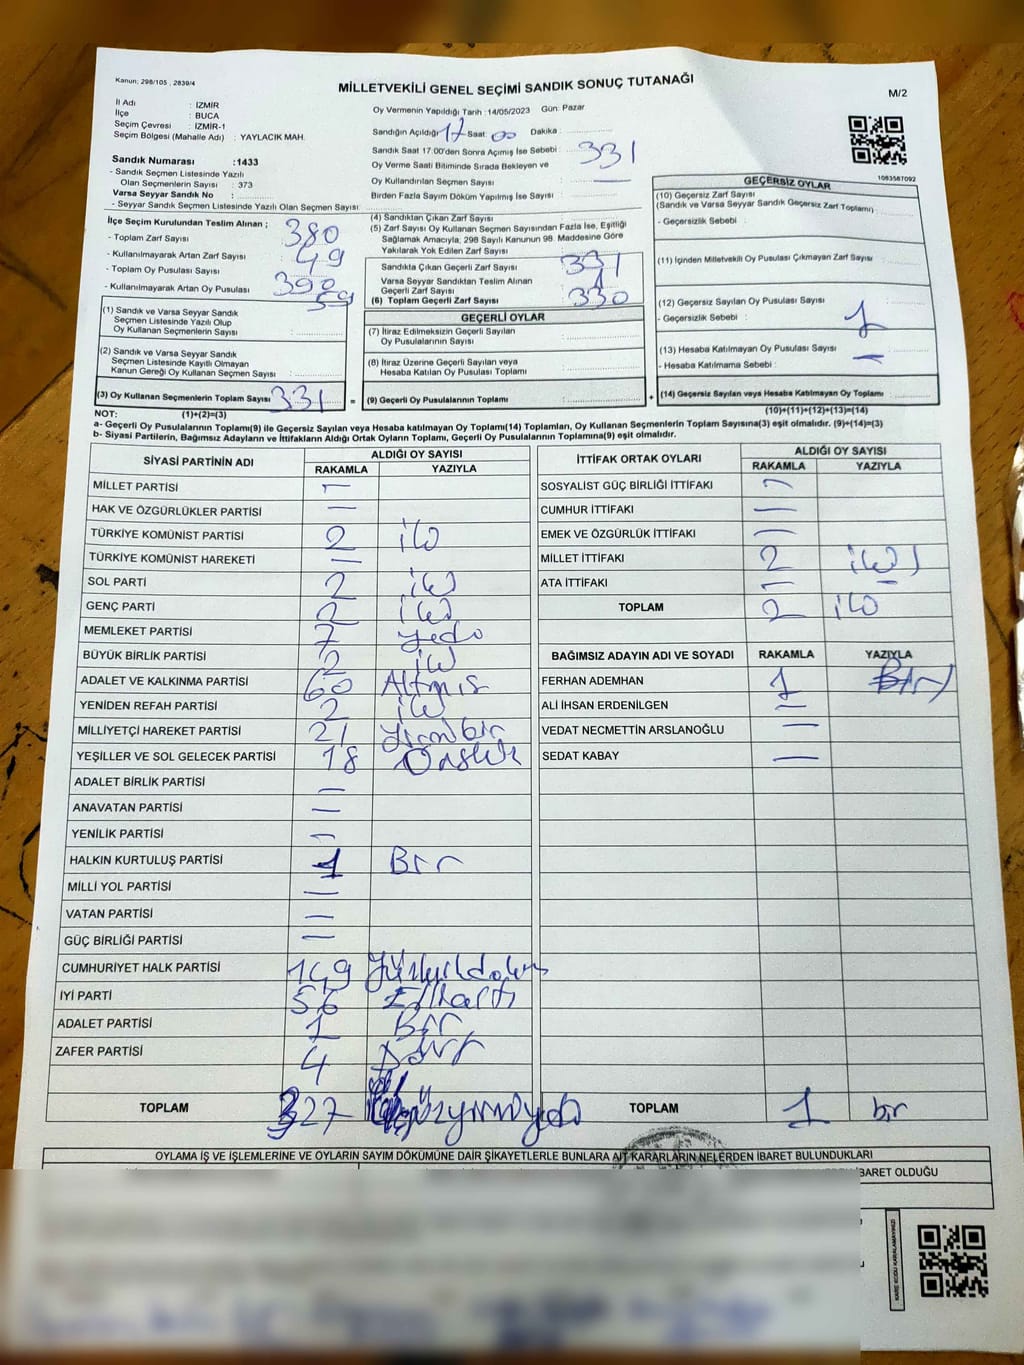 Kanun: 298/105 , 2839/4
MİLLETVEKİLİ GENEL SEÇİMİ SANDIK SONUÇ TUTANAĞI
M/2
İl Adı : İZMİR
İlçe : BUCA
Seçim Çevresi : İZMİR-1
Seçim Bölgesi (Mahalle Adı) : YAYLACIK MAH.
Oy Vermenin Yapıldığı Tarih : 14/05/2023 Gün: Pazar
Sandığın Açıldığı 17 Saat: 00 Dakika :
Sandık Saat 17:00'den Sonra Açımış İse Sebebi :
331
Oy Verme Saati Bitiminde Sırada Bekleyen ve
Oy Kullandırılan Seçmen Sayısı : —
Birden Fazla Sayım Döküm Yapılmış İse Sayısı :
1083587092
Sandık Numarası :1433
- Sandık Seçmen Listesinde Yazılı
Olan Seçmenlerin Sayısı : 373
Varsa Seyyar Sandık No :
- Seyyar Sandık Listesinde Yazılı Olan Seçmen Sayısı :
İlçe Seçim Kurulundan Teslim Alınan ;
- Toplam Zarf Sayısı : 380
- Kullanılmayarak Artan Zarf Sayısı : 49
- Toplam Oy Pusulası Sayısı : 390
- Kullanılmayarak Artan Oy Pusulası : 59
(1) Sandık ve Varsa Seyyar Sandık
Seçmen Listesinde Yazılı Olup
Oy Kullanan Seçmenlerin Sayısı :
(2) Sandık ve Varsa Seyyar Sandık
Seçmen Listesinde Kayıtlı Olmayan
Kanun Gereği Oy Kullanan Seçmen Sayısı :
(3) Oy Kullanan Seçmenlerin Toplam Sayısı : 331
(4) Sandıktan Çıkan Zarf Sayısı :
(5) Zarf Sayısı Oy Kullanan Seçmen Sayısından Fazla İse, Eşitliği
Sağlamak Amacıyla; 298 Sayılı Kanunun 98. Maddesine Göre
Yakılarak Yok Edilen Zarf Sayısı :
Sandıkta Çıkan Geçerli Zarf Sayısı : 331
Varsa Seyyar Sandıktan Teslim Alınan
Geçerli Zarf Sayısı : 1
(6) Toplam Geçerli Zarf Sayısı : 330
GEÇERLİ OYLAR
(7) İtiraz Edilmeksizin Geçerli Sayılan
Oy Pusulalarının Sayısı :
(8) İtiraz Üzerine Geçerli Sayılan veya
Hesaba Katılan Oy Pusulası Toplamı :
= (9) Geçerli Oy Pusulalarının Toplamı :
GEÇERSİZ OYLAR
(10) Geçersiz Zarf Sayısı
(Sandık ve Varsa Seyyar Sandık Geçersiz Zarf Toplamı)
- Geçersizlik Sebebi :
(11) İçinden Milletvekili Oy Pusulası Çıkmayan Zarf Sayısı :
(12) Geçersiz Sayılan Oy Pusulası Sayısı : 1
- Geçersizlik Sebebi :
(13) Hesaba Katılmayan Oy Pusulası Sayısı : —
- Hesaba Katılmama Sebebi :
+ (14) Geçersiz Sayılan veya Hesaba Katılmayan Oy Toplamı :
NOT: (1)+(2)=(3) (10)+(11)+(12)+(13)=(14)
a- Geçerli Oy Pusulalarının Toplamı(9) ile Geçersiz Sayılan veya Hesaba katılmayan Oy Toplamı(14) Toplamları, Oy Kullanan Seçmenlerin Toplam Sayısına(3) eşit olmalıdır. (9)+(14)=(3)
b- Siyasi Partilerin, Bağımsız Adayların ve İttifakların Aldığı Ortak Oyların Toplamı, Geçerli Oy Pusulalarının Toplamına(9) eşit olmalıdır.
SİYASİ PARTİNİN ADI ALDIĞI OY SAYISI
RAKAMLA YAZIYLA
MİLLET PARTİSİ —
HAK VE ÖZGÜRLÜKLER PARTİSİ —
TÜRKİYE KOMÜNİST PARTİSİ 2 iki
TÜRKİYE KOMÜNİST HAREKETİ —
SOL PARTİ 2 iki
GENÇ PARTİ 2 iki
MEMLEKET PARTİSİ 7 yedi
BÜYÜK BİRLİK PARTİSİ 2 iki
ADALET VE KALKINMA PARTİSİ 60 Altmış
YENİDEN REFAH PARTİSİ 2 iki
MİLLİYETÇİ HAREKET PARTİSİ 21 yirmibir
YEŞİLLER VE SOL GELECEK PARTİSİ 18 Onsekiz
ADALET BİRLİK PARTİSİ —
ANAVATAN PARTİSİ —
YENİLİK PARTİSİ —
HALKIN KURTULUŞ PARTİSİ 1 Bir
MİLLİ YOL PARTİSİ —
VATAN PARTİSİ —
GÜÇ BİRLİĞİ PARTİSİ —
CUMHURİYET HALK PARTİSİ 149 Yüzkırkdokuz
İYİ PARTİ 56 Ellialtı
ADALET PARTİSİ 1 Bir
ZAFER PARTİSİ 4 Dört
TOPLAM 327 üçyüzyirmiyedi
İTTİFAK ORTAK OYLARI ALDIĞI OY SAYISI
RAKAMLA YAZIYLA
SOSYALİST GÜÇ BİRLİĞİ İTTİFAKI —
CUMHUR İTTİFAKI —
EMEK VE ÖZGÜRLÜK İTTİFAKI —
MİLLET İTTİFAKI 2 iki
ATA İTTİFAKI — —
TOPLAM 2 iki
BAĞIMSIZ ADAYIN ADI VE SOYADI RAKAMLA YAZIYLA
FERHAN ADEMHAN 1 Bir
ALİ İHSAN ERDENİLGEN —
VEDAT NECMETTİN ARSLANOĞLU —
SEDAT KABAY —
TOPLAM 1 bir
OYLAMA İŞ VE İŞLEMLERİNE VE OYLARIN SAYIM DÖKÜMÜNE DAİR ŞİKAYETLERLE BUNLARA AİT KARARLARIN NELERDEN İBARET BULUNDUKLARI
İBARET OLDUĞU
KARE KODU KARALAMAYINIZ!